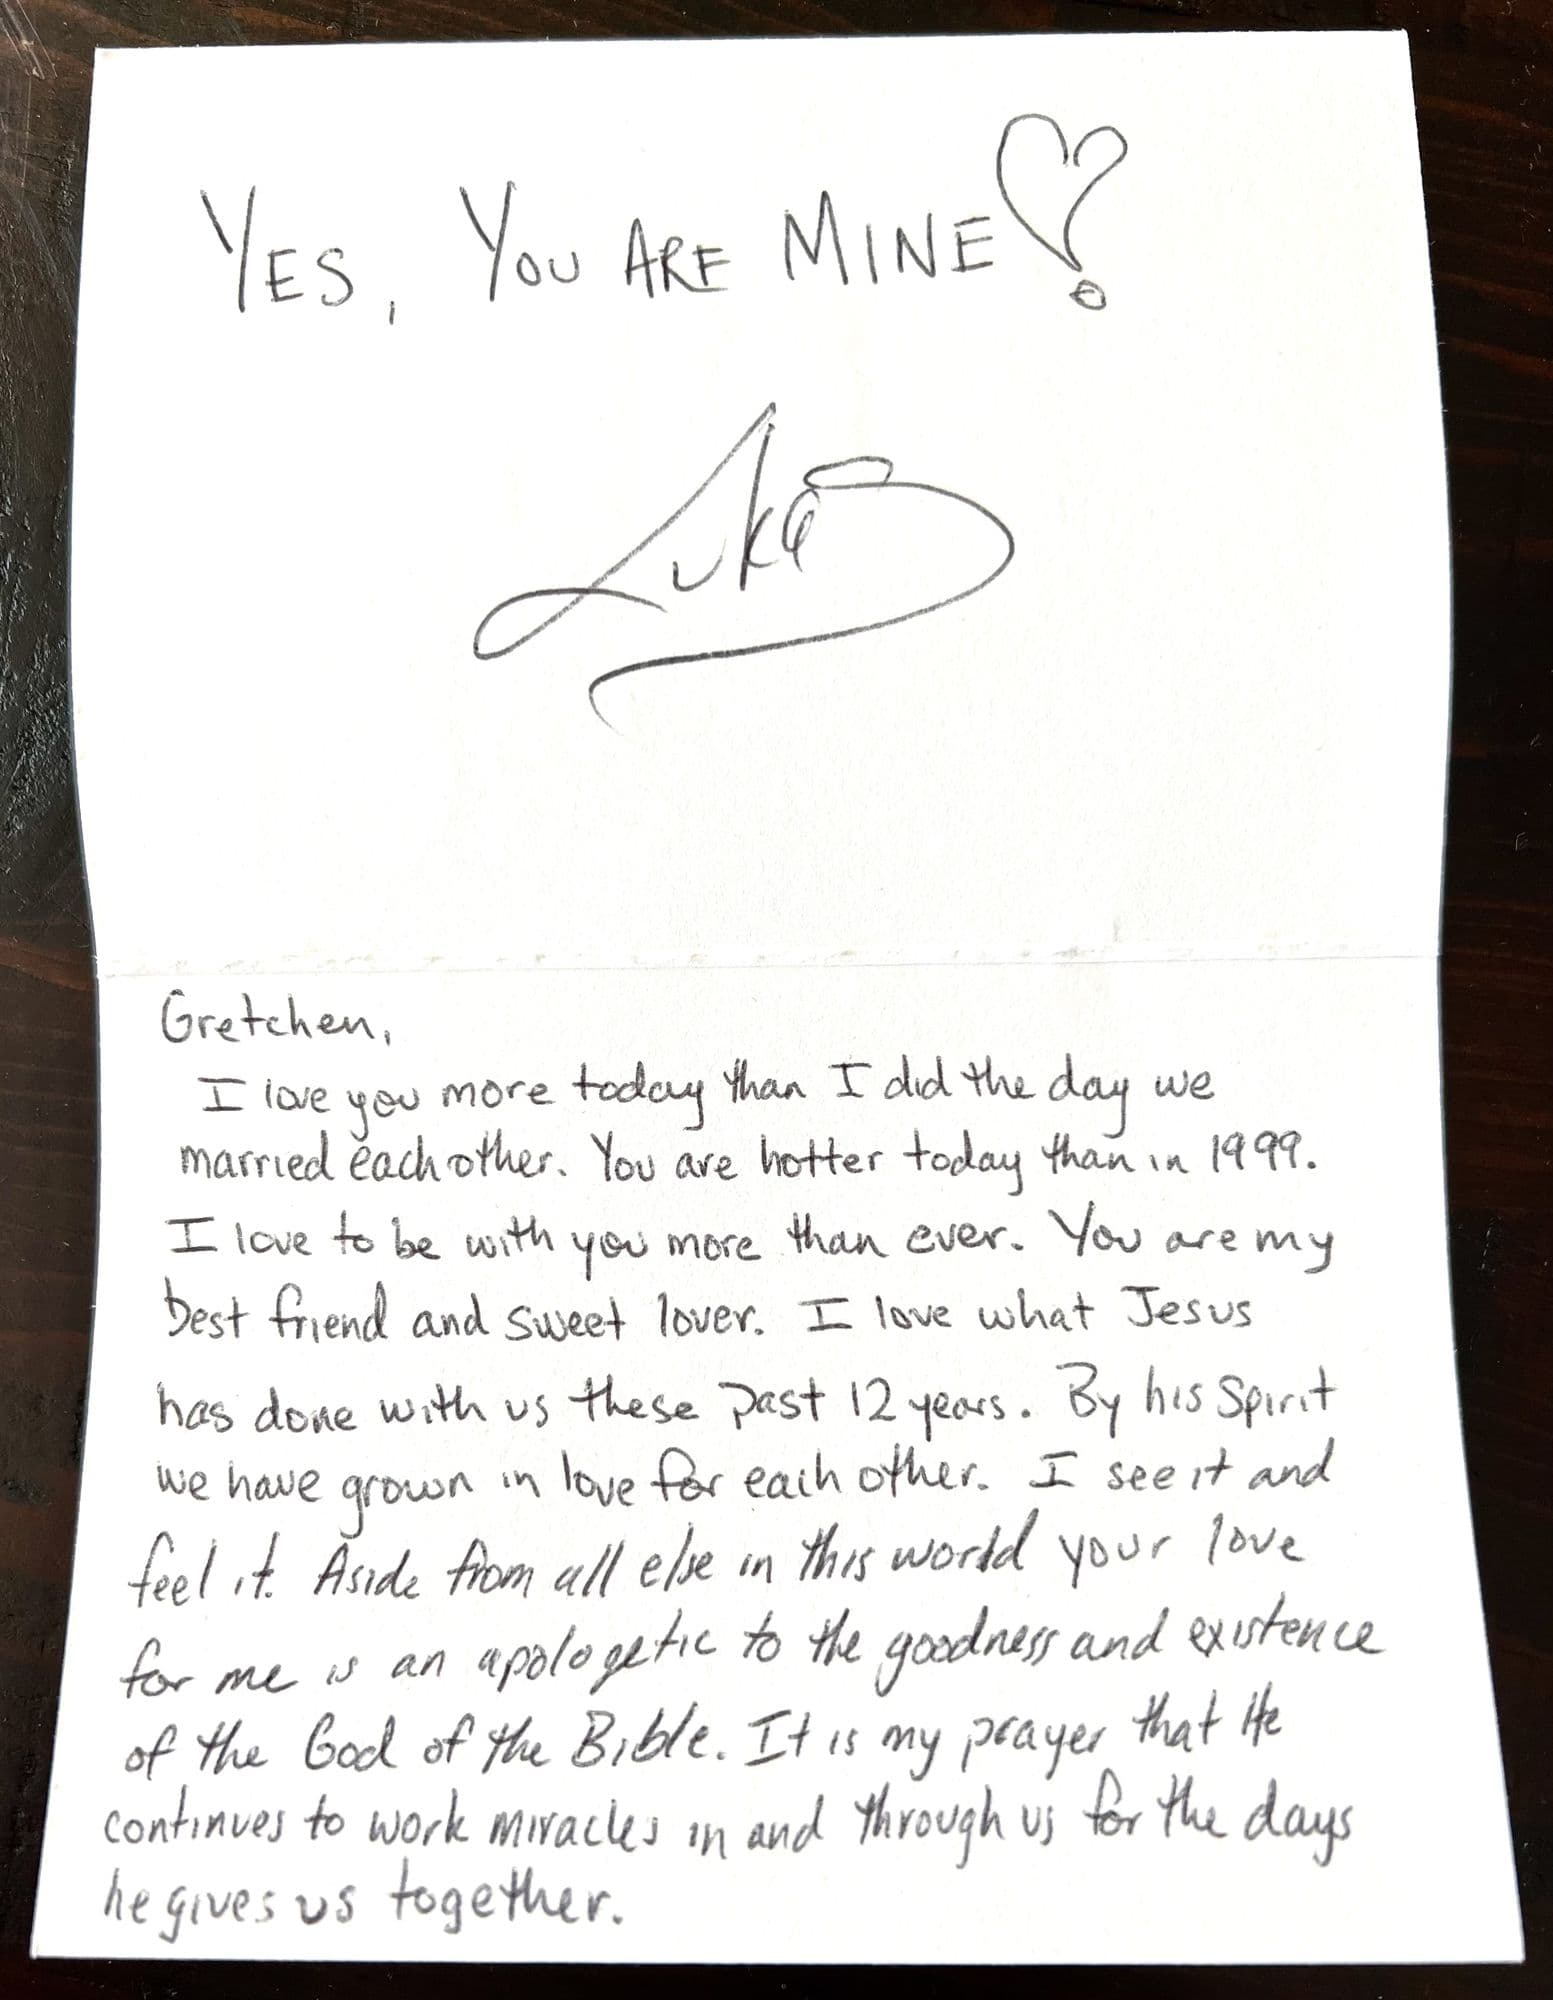 YES, YOU ARE MINE
Luke
Gretchen,
I love you more today than I did the day we
married eachother. You are hotter today than in 1999.
I love to be with you more than ever. You are my
best friend and sweet lover. I love what Jesus
has done with us these past 12 years. By his Spirit
we have grown in love for each other. I see it and
feel it. Aside from all else in this world your love
for me is an apologetic to the goodness and existence
of the God of the Bible. It is my prayer that He
continues to work miracles in and through us for the days
he gives us together.